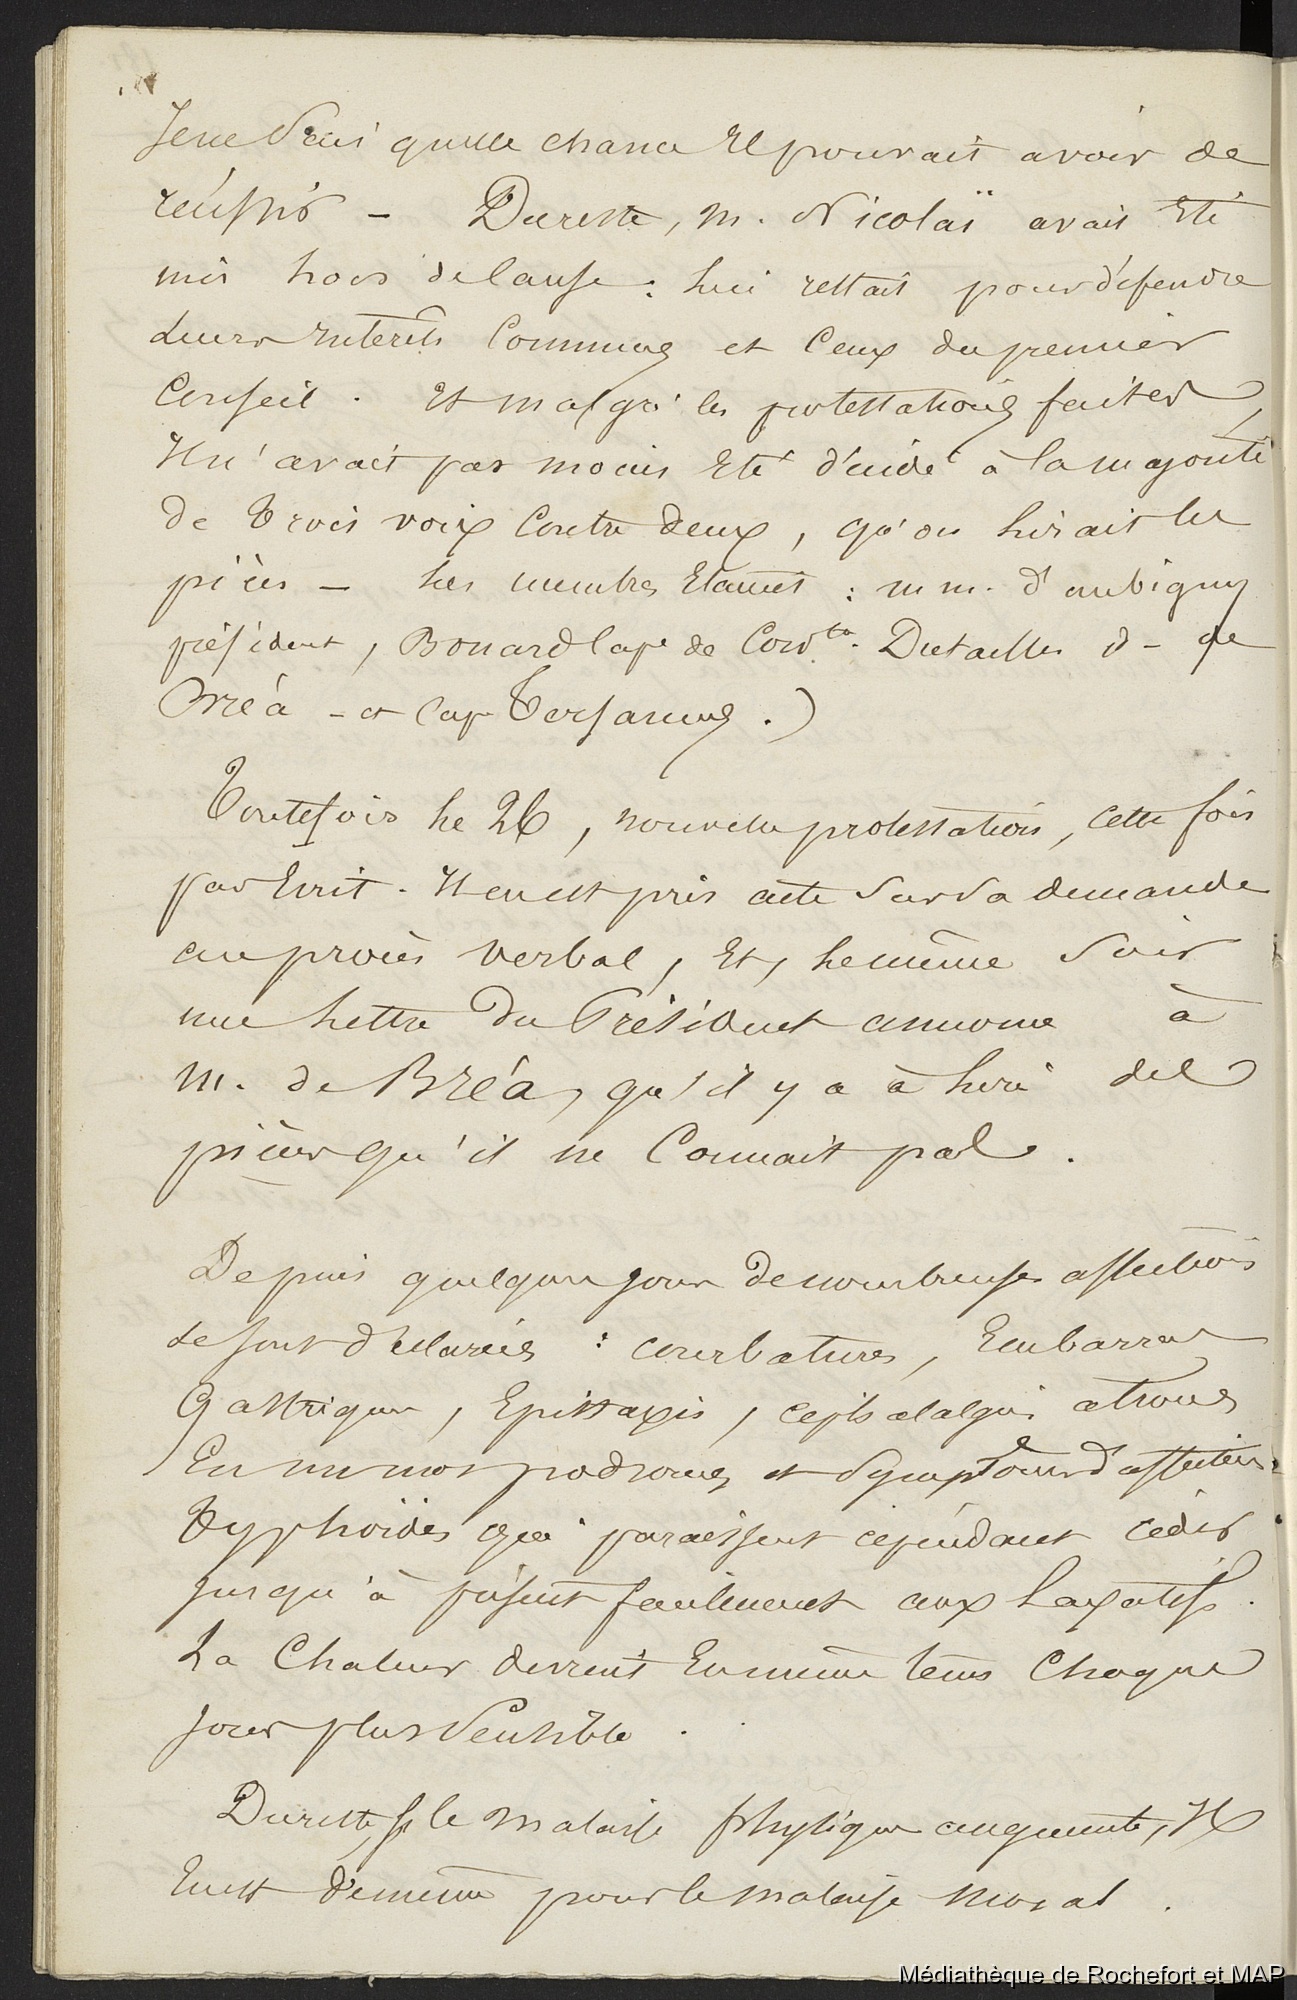 Je ne sais quelle chance il pouvait avoir de
réussir - Dureste, M. Nicolaï avait été
mis hors de cause : lui restait pour défendre
leurs intérêts communs et ceux du premier
Conseil. Et malgré les protestations faites,
Il n'avait pas moins été décidé à la majorité
de trois voix contre deux, qu'on lirait les
pièces - les membres étaient : mm. d'aubigny
président, Bonard Cape de Corvte. Dutaillis id - de
Bréa - et Cap
Toutefois le 26, nouvelle protestation, cette fois
par écrit. Il en est pris acte sur sa demande
au procès verbal, Et, le même soir
une lettre du Président annonce à
M. de Bréa, qu'il y a à lire des
pièces qu'il ne connait pas.
Depuis quelques jours de nombreuses affections
se sont déclarées : courbatures, Embarras
Gastriques, Epistaxis, céphalalgies atroces
En un mot prodromes et symptômes d'affections
typhoïdes qui paraissent cependant céder
jusqu'à présent facilement aux laxatifs.
La Chaleur devient En même tems chaque
jour plus sensible.
Dureste, si le malaise physique augmente, Il
En est de même pour le malaise moral.
Médiathèque de Rochefort et MAP